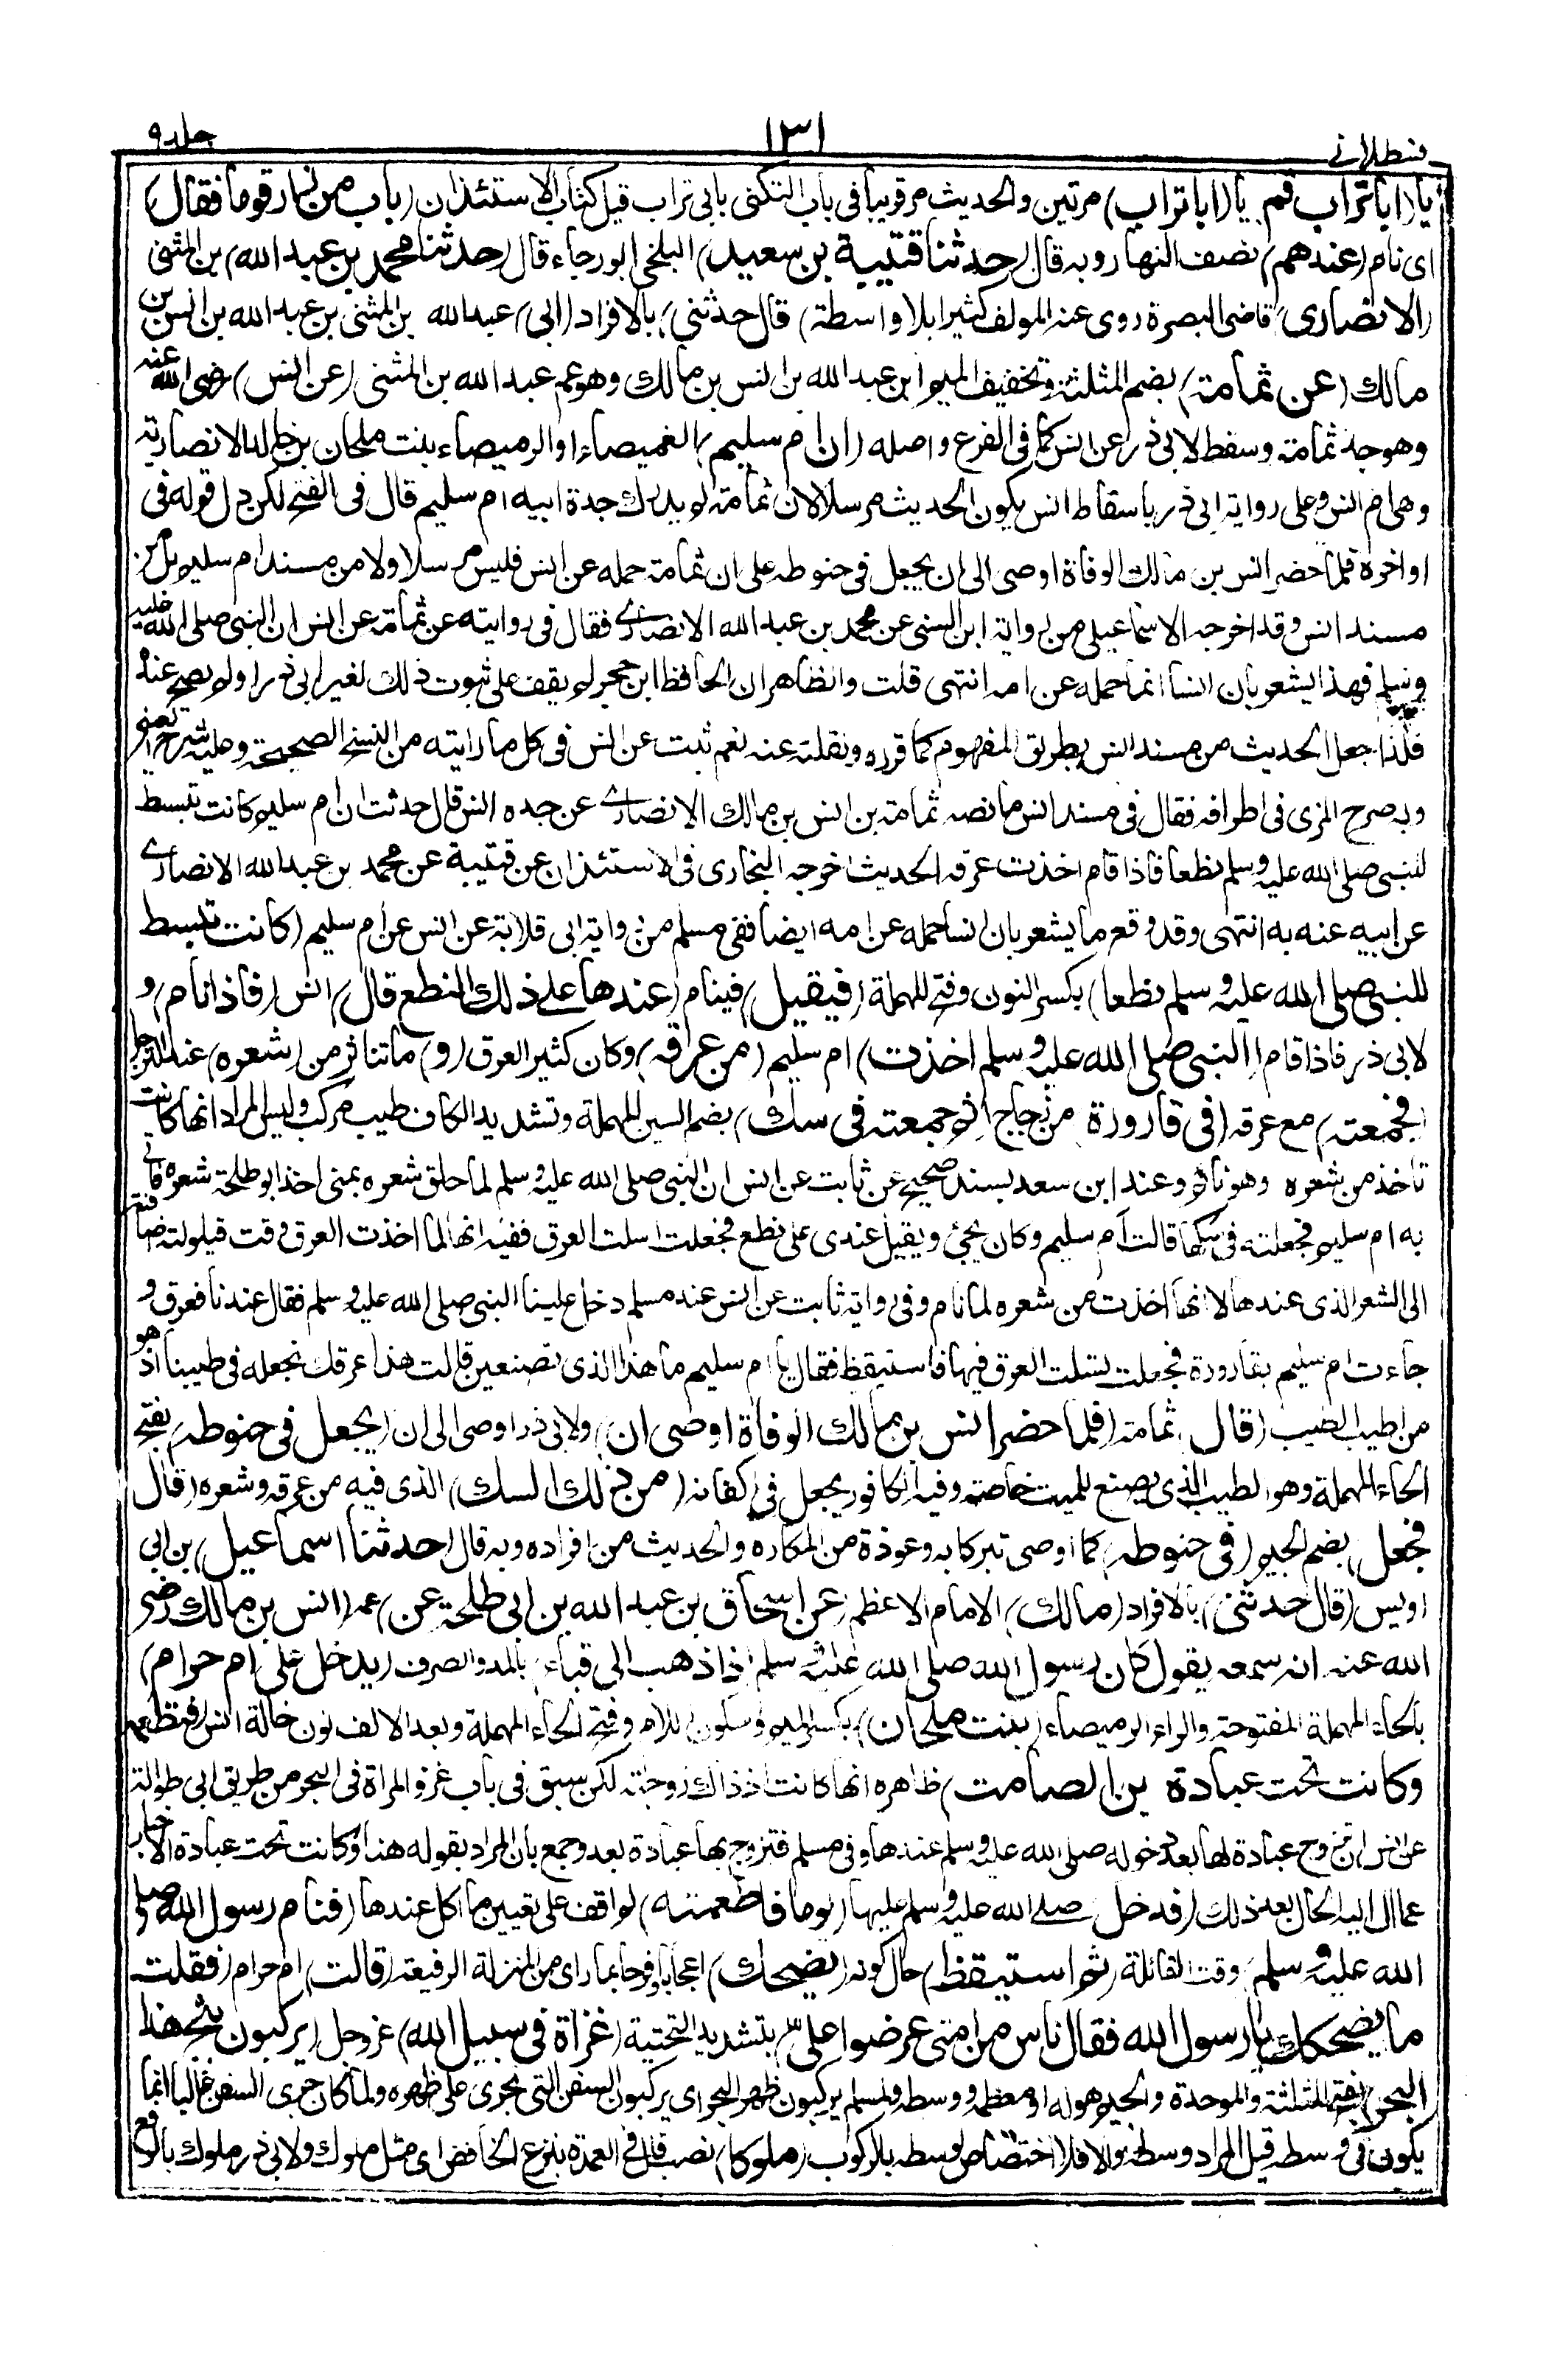 قسطلانے
١٣١
جلد ٩
يا (ابا تراب قم يا (ابا تراب) مرتين والحديث مر قريبا فى باب التكنى بابى تراب قبل كتاب الاستئذان (باب من زار قوما فقال)
اى نام (عندهم) نصف النهار وبه قال (حدثنا قتيبة بن سعيد) البلخى ابو رجاء قال (حدثنا محمد بن عبد الله) بن المثنى
(الانصارى) قاضى البصرة روى عنه المولف كثيرا بلا واسطة (قال حدثنى) بالافراد (ابى) عبد الله بن المثنى بن عبد الله بن انس بن
مالك (عن ثمامة) بضم المثلثة وتخفيف الميم ابن عبد الله بن انس بن مالك وهو عم عبد الله بن المثنى (عن انس) رضى الله عنه
وهو جد ثمامة وسقط لابى ذر عن انس كما فى الفرع واصله (ان ام سليم) الغميصاء او الرميصاء بنت ملحان بن خالد الانصارية
وهى ام انس وعلى رواية ابى ذر باسقاط انس يكون الحديث مرسلا لان ثمامة لم يدرك جدة ابيه ام سليم قال فى الفتح لكن دل قوله فى
اواخره فلما حضر انس بن مالك الوفاة اوصى الى ان يجعل فى حنوطه على ان ثمامة حمله عن انس فليس مرسلا ولا من مسند ام سليم بل من
مسند انس وقد اخرجه الاسماعيلى من رواية ابن المثنى عن محمد بن عبد الله الانصارے فقال فى روايته عن ثمامة عن انس ان النبى صلى الله عليه
وسلم فهذا يشعر بان انسا انما حمله عن امه انتهى قلت والظاهر ان الحافظ ابن حجر لم يقف على ثبوت ذلك لغير ابى ذر او لم يصح عنده
فلذا جعل الحديث من مسند انس بطريق المفهوم كما قرره ونقلته عنه نعم ثبت عن انس فى كل ما رايته من النسخ الصحيحة وعليه شرح العينى
وبه صرح المزى فى اطرافه فقال فى مسند انس ما نصه ثمامة بن انس بن مالك الانصارے عن جده انس قال حدثت ان ام سليم كانت تبسط
للنبى صلى الله عليه وسلم نطعا فاذا قام اخذت عرقه الحديث اخرجه البخارى فى الاستئذان عن قتيبة عن محمد بن عبد الله الانصارے
عن ابيه عنه به انتهى وقد وقع ما يشعر بان انسا حمله عن امه ايضا ففى مسلم من رواية ابى قلابة عن انس عن ام سليم (كانت تبسط
للنبى صلى الله عليه وسلم نطعا) بكسر النون وفتح المهملة (فيقيل) فينام (عندها على ذلك النطع قال) انس (فاذا نام) و
لابى ذر فاذا قام (النبى صلى الله عليه وسلم اخذت) ام سليم (من عرقه) وكان كثير العرق (و) ما تناثر من (شعره) عند الترجل
(فجمعته) مع عرقه (فى قارورة) من زجاج (ثم جمعته فى سك) بضم السين المهملة وتشديد الكاف طيب مركب وليس المراد انها كانت
تاخذ من شعره وهو نائم وعند ابن سعد بسند صحيح عن ثابت عن انس ان النبى صلى الله عليه وسلم لما حلق شعره بمنى اخذ ابو طلحة شعره فاتى
به ام سليم فجعلته فى سكها قالت ام سليم وكان يجئ ويقيل عندى على نطع فجعلت اسلت العرق ففيه انها لما اخذت العرق وقت قيلولته ضافته
الى الشعر الذى عندها لا انها اخذت من شعره لما نام وفى رواية ثابت عن انس عند مسلم دخل علينا النبى صلى الله عليه وسلم فقال عندنا فعرق و
جاءت ام سليم بقارورة فجعلت تسلت العرق فيها فاستيقظ فقال يا ام سليم ما هذا الذى تصنعين قالت هذا عرقك نجعله فى طيبنا اذ هو
من اطيب الطيب (قال) ثمامة (فلما حضر انس بن مالك الوفاة اوصى ان) ولابى ذر اوصى الى ان (يجعل فى حنوطه) بفتح
الحاء المهملة وهو الطيب الذى يصنع للميت خاصة وفيه الكافور يجعل فى اكفانه (من ذلك السك) الذى فيه من عرقه وشعره (قال
فجعل) بضم الجيم (فى حنوطه) كما اوصى تبركا به وعوذة من المكاره والحديث من افراده وبه قال (حدثنا اسماعيل) بن ابى
اويس (قال حدثنى) بالافراد (مالك) الامام الاعظم (عن اسحاق بن عبد الله بن ابى طلحة عن) عمه (انس بن مالك رضى
الله عنه انه سمعه يقول كان رسول الله صلى الله عليه وسلم اذا ذهب الى قباء) بالمد والصرف (يدخل على ام حرام)
بالحاء المهملة المفتوحة والراء الرميصاء (بنت ملحان) بكسر الميم وسكون اللام وفتح الحاء المهملة وبعد الالف نون خالة انس (فتطعمه
وكانت تحت عبادة بن الصامت) ظاهره انها كانت اذ ذاك زوجته لكن سبق فى باب غزو المراة فى البحر من طريق ابى طوالة
عن انس ان تزوج عبادة لها بعد دخوله صلى الله عليه وسلم عندها وفى مسلم فتزوج بها عبادة بعد وجمع بان المراد بقوله هنا وكانت تحت عبادة الاخبار
عما ال اليه الحال بعد ذلك (فدخل) صلے الله عليه وسلم عليها (يوما فاطعمته) لم اقف على تعيين ما اكل عندها (فنام رسول الله صلى
الله عليه وسلم) وقت القائلة (ثم استيقظ) حال كونه (يضحك) اعجابا وفرحا بما راى من المنزلة الرفيعة (قالت) ام حرام (فقلت
ما يضحكك يا رسول الله فقال ناس من امتى عرضوا على) بتشديد التحتية (غزاة فى سبيل الله) عز وجل (يركبون ثبج هذا
البحر) بفتح المثلثة والموحدة والجيم هوله او معظمه ووسطه ولمسلم يركبون ظهر البحر اى يركبون السفن التى تجرى على ظهره ولما كان جرى السفن غالبا انما
يكون فى وسطه قيل المراد وسطه والا فلا اختصاص لوسطه بالركوب (ملوكا) نصب قال فى العمدة بنزع الخافض اى مثل ملوك ولابى ذر ملوك بالرفع